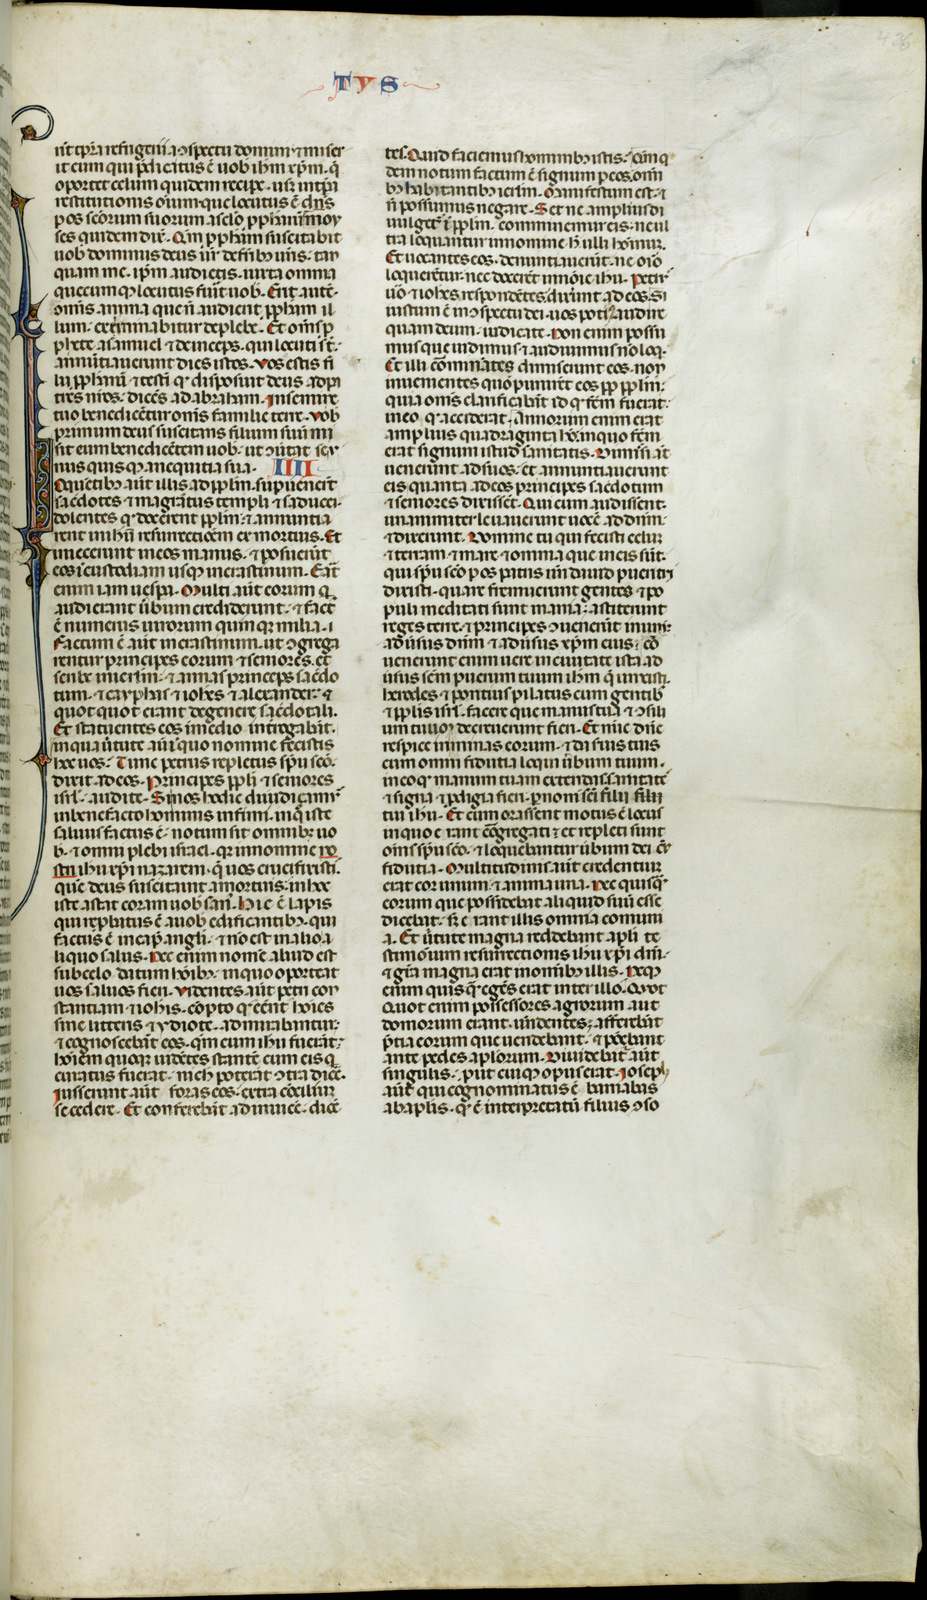 TVS
nĩt tp̃ra refrigerii a ɔspectu domini ⁊ miser
it eum qui p̃dicatus ẽ uob ihm xp̃m. q̃
oportet celum quidem recipe. usq̢ in tp̃a
restitutionis oĩum que locutus ẽ dñs
p os sc̃orum suorum a sc̃lo pp̃harũ moy
ses quidem dix̃. Qm̃ pp̃ham suscitabit
uob dominus deus ur̃ de fr̃ib ur̃is. tan
quam me. ip̃m audietis. iuxta omnia
quecumq̢ locutus fuit uob. Erit autẽ.
om̃is anima que ñ audierit pp̃ham il
lum. exterminabitur de plebe. Et om̃s p
phete a samuel ⁊ deinceps. qui locuti st̃.
annũtiauerunt dies istos. Vos estis fi
lii pp̃harũ ⁊ testĩ q̃ disposuit deus ad pa
tres nr̃os. dicẽs ad abraham. In semine
tuo benedicẽtur om̃s familie terre. Vob
primum deus suscitans filium suũ mi
sit eum benedicẽtem uob. ut ɔũtat se u
nus quisq̢ a nequitia sua. IIII
Loquetib aũt illis ad pp̃lm. supuenerũt
sac̃dotes ⁊ magr̃atus templi ⁊ saducei.
dolentes q̃ docerent pp̃lm. ⁊ annuntia
rent in ihũ resurrectiõem ex mortuis. Et
iniecerunt in eos manus. ⁊ posuerũt
eos ĩ custodiam usq̢ in crastinum. Erat
enim iam uesp̃a. Multi aũt eorum q̢
audierant ũbum crediderunt. ⁊ factꝰ
ẽ numerus uirorum quinq̢ milia.
Factum ẽ aũt in crastinum. ut ɔgrega
rentur principes eorum ⁊ seniores. et
scribe in ierl̃m. ⁊ annas princeps sac̃do
tum. ⁊ cayphas ⁊ ioh̃es ⁊ alexander. ⁊
quot quot erant de genere sac̃dotali.
Et statuentes eos in medio. introgabãt.
In qua ũtute aũ i quo nomine fecistis
hoc uos. Tunc petrus repletus sp̃u sc̃o.
dixit ad eos. Principes pp̃li ⁊ seniores
isrl̃. audite. Si nos hodie diiudicamur
in benefacto hominis infirmi. in q̃ iste
saluus factus ẽ. notum sit omnibꝫ uo
b. ⁊ omni plebi israel. q̃ in nomine
ihu xp̃i nazareni. q̃ uos crucifixistis.
quẽ deus suscitauit a mortuis. in hoc
iste astat coram uob san̄. Hic ẽ lapis
qui rep̃batus ẽ a uob edificantibꝫ. qui
factus ẽ in cap̃ angl̃i. ⁊ nõ est in alio a
liquo salus. Nec enim nom̃e aliud est
sub celo datum hõibꝫ. in quo oporteat
uos saluos fieri. Videntes aũt petri con
stantiam ⁊ ioh̃is. cõpto q̃ eẽnt hoies
sine litteris ⁊ ydiote. admirabantur.
⁊ cognoscebãt eos. qm̃ cum ihu fuerãt.
hoiẽm quoq̢ uidẽtes stantẽ cum eis q̢
curatus fuerat. nich̃ poterãt ɔtra dicẽ.
Iusserunt aũt foras eos. extra cõcilium
secedere. Et conferebãt ad inuicẽ. dicẽ
tes. Quid faciemus hominibꝫ istis. Qm̃ q
dem notum factum ẽ signum p eos. om̃i
bꝫ habitantibꝫ ierl̃m. manifestum est. ⁊
ñ possumus negare. Set ne amplius di
uulgetᷣ ĩ pp̃lm. comminemur eis. ne ul
tra loquantur in nomine h̃ ulli hom̃nũ.
Et uocantes eos. denuntiauerũt. ne oĩo
loquerẽtur. nec docerẽt in nõie ihu. Petrᷤ
ũo ⁊ ioh̃es respondẽtes. dixerũt ad eos. Si
iustum ẽ in ɔspectu dei. uos potiꝰ audire
quam deum. iudicate. Non enim possu
mus que uidimus ⁊ audiuimus nõ loq̢.
Et illi cõminãtes dimiserunt eos. non
inuenientes quõ punirẽt eos pp̃ pp̃lm.
quia om̃s clarificabãt id q̃ fc̃m fuerat.
in eo q̃ acciderat. Annorum enim erat
amplius quadraginta hõ. in quo fc̃m
erat signum istud sanitatis. Dimissi aũt
uenerunt ad suos. et annuntiauerunt
eis quanta ad eos principes sac̃dotum
⁊ seniores dixissẽt. Qui cum audissent.
unanimiter leuauerunt uocẽ ad dñm.
⁊ dixerunt. Domine tu qui fecisti celum
⁊ terram ⁊ mare. ⁊ omnia que in eis sũt.
qui sp̃u sc̃o p os patris nr̃i dauid pueri tui
dixisti. quare fremuerunt gentes ⁊ po
puli meditati sunt inania. astiterunt
reges terre. ⁊ principes ɔuenerũt in unũ.
aduĩsus dñm ⁊ aduĩsus xp̃m eius. cõ
uenerunt enim uere in ciuitate ista ad
uĩsus sc̃m puerum tuum ihm q̃ unxisti.
herodes ⁊ pontius pilatus cum gentibꝰ
⁊ pp̃lis isrl̃. facere que manus tua ⁊ ɔsili
um tuũ decreuerunt fieri. Et nũc dñe
respice in minas eorum. ⁊ da seruis tuis
cum omni fidutia loqui ũbum tuum.
in eo q̃ manum tuam extendas sanitate
⁊ signa ⁊ p̃digia fieri. p nom̃ sc̃i filii
tui ihu. Et cum orassent motus ẽ locus
in quo erant cõgregati. et repleti sunt
om̃s sp̃u sc̃o. ⁊ loquebantur ũbum dei cũ
fidutia. Multitudinis aũt credentium
erat cor unum ⁊ anima una. Nec quisq̃
eorum que possidebat aliquid suũ esse
dicebat. s; erant illis omnia comuni
a. Et ũtute magna reddebant apl̃i te
stimonium resurrectionis ihu xp̃i dñi.
⁊ gr̃a magna erat in omĩbꝫ illis. Neq̢
enim quisq̃ egẽs erat inter illos. Quot
quot enim possessores agrorum aut
domorum erant. uẽdentes. afferebãt
p̃tia eorum que uendebant. ⁊ põebant
ante pedes apl̃orum. Diuidebat̃ aũt
singulis. put cuiq̢ opus erat. Ioseph
aũt qui cognominatus ẽ barnabas
ab apl̃is. q̃ ẽ interpretatũ filius ɔso